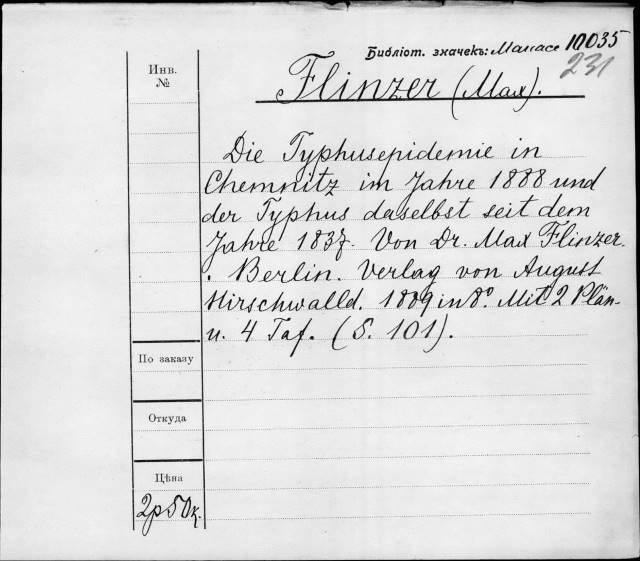 Библіот. значекъ: Manace 10035
231
Инв.
№
Flinzer (Max).
Die Typhusepidemie in
Chemnitz im Jahre 1888 und
der Typhus daselbst seit dem
Jahre 1837. Von Dr. Max Flinzer.
. Berlin. Verlag von August
Hirschwalld. 1889 in 8º. Mit 2 Plän-
u. 4 Taf. (S. 101).
По заказу
Откуда
Цѣна
2р50к.